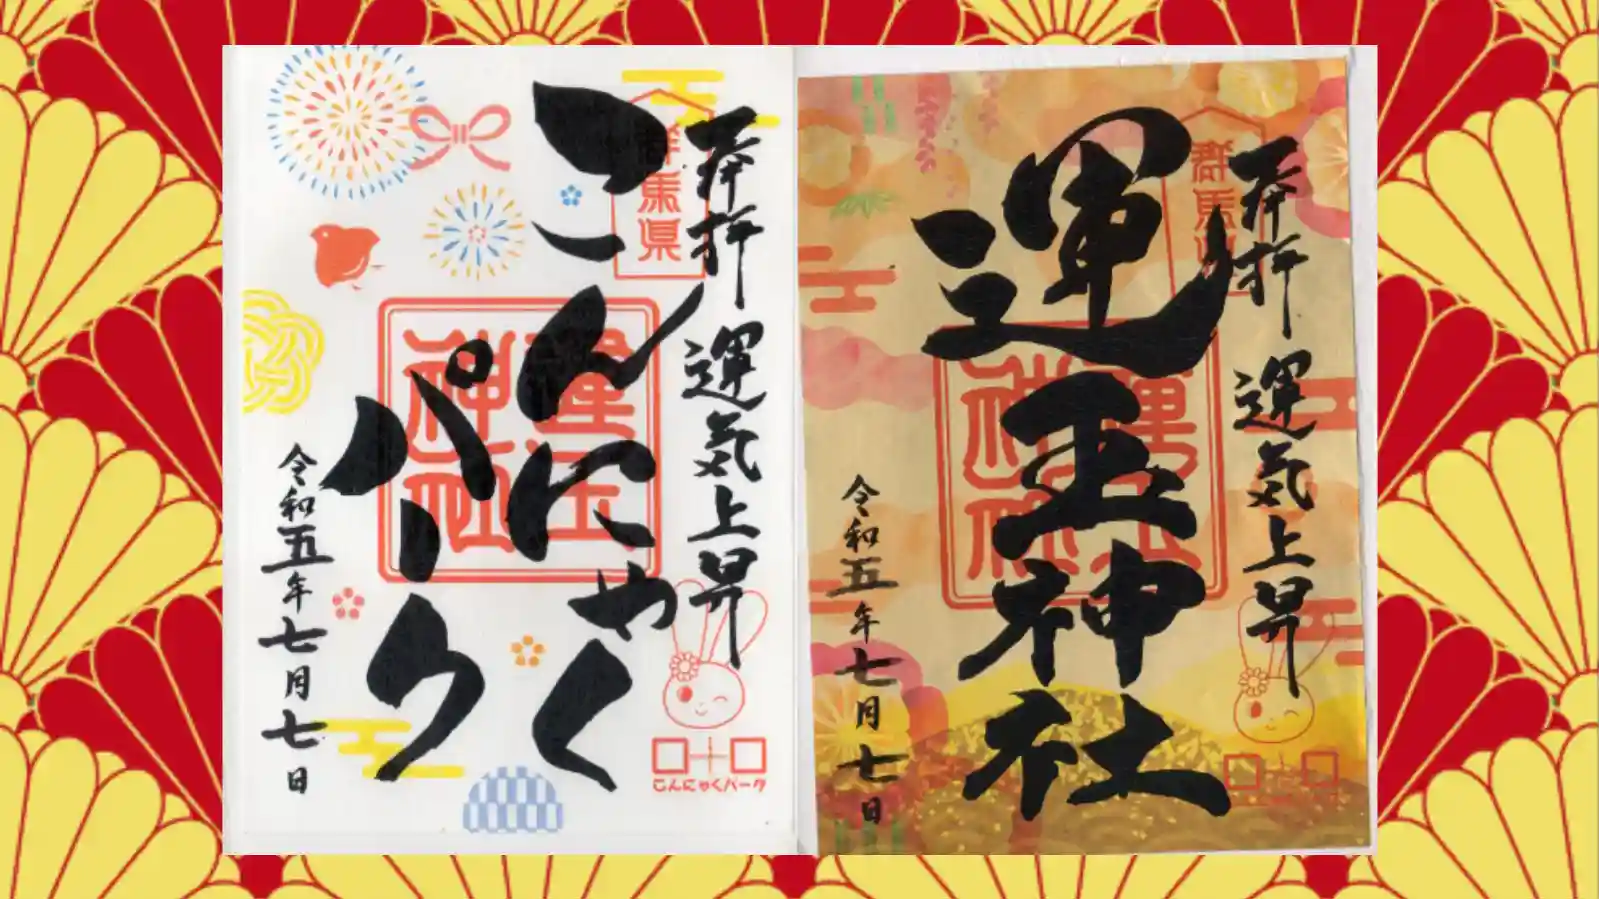 奉拝 運気上昇
群馬県
こんにゃく
パーク
運玉
神社
令和五年七月七日
ロ十ロ
こんにゃくパーク
奉拝 運気上昇
群馬県
運玉神社
運玉
神社
令和五年七月七日